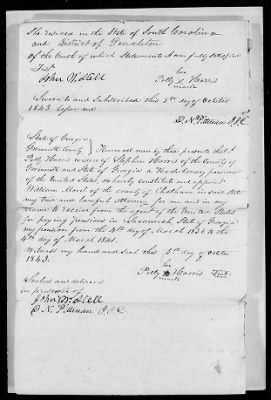 She resided in the State of South Carolina
and District of Pendleton
of the truth of which Statements I am fully satisfied
Test
John W. Stell
her
Polly X Harris
mark
Sworn to and Subscribed this 3rd day of October
1843 before me
D. N. Pittman J.P.
State of Georgia
Gwinnett County
Know all men by these presents that I
Polly Harris widow of Stephen Harris of the County of
Gwinnett and State of Georgia a Revolutionary pensioner
of the United States, do hereby constitute and appoint
William Morel of the county of Chatham in said state
my true and lawful attorney for me and in my
name to receive from the agent of the United States
for paying pensions in Savannah State of Georgia
my pension from the 4th day of March 1836 to the
4th day of March 1841.
Witness my hand and seal this 3rd day of October
1843.
her
Polly X Harris
mark
Sealed and delivered
in presence of
John W. Stell
D. N. Pittman J.P.